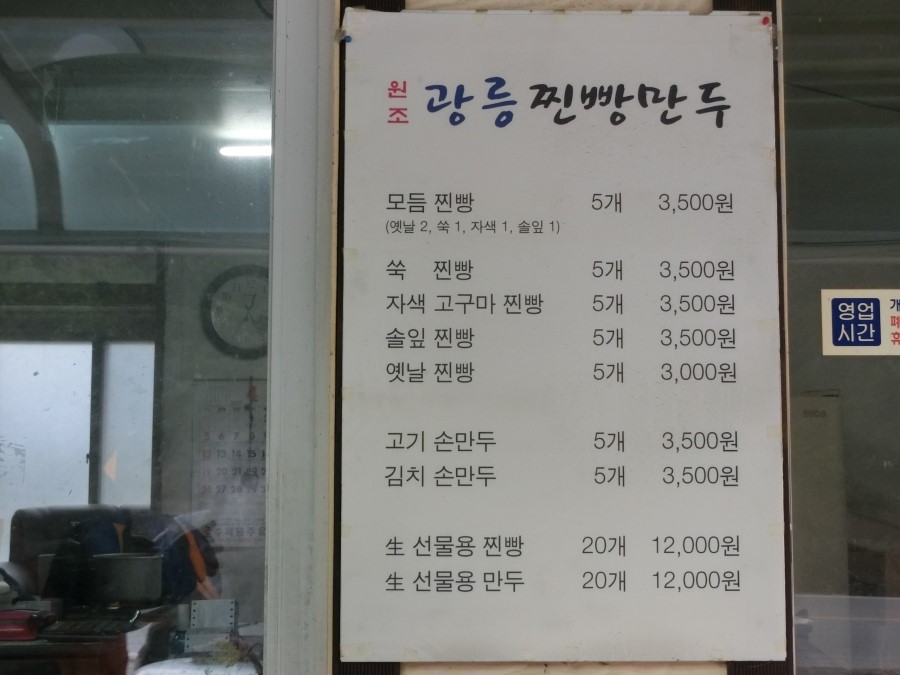 원조 광릉 찐빵만두
모듬 찐빵 5개 3,500원
(옛날 2, 쑥 1, 자색 1, 솔잎 1)
쑥 찐빵 5개 3,500원
자색 고구마 찐빵 5개 3,500원
솔잎 찐빵 5개 3,500원
옛날 찐빵 5개 3,000원
고기 손만두 5개 3,500원
김치 손만두 5개 3,500원
生 선물용 찐빵 20개 12,000원
生 선물용 만두 20개 12,000원
영업
시간